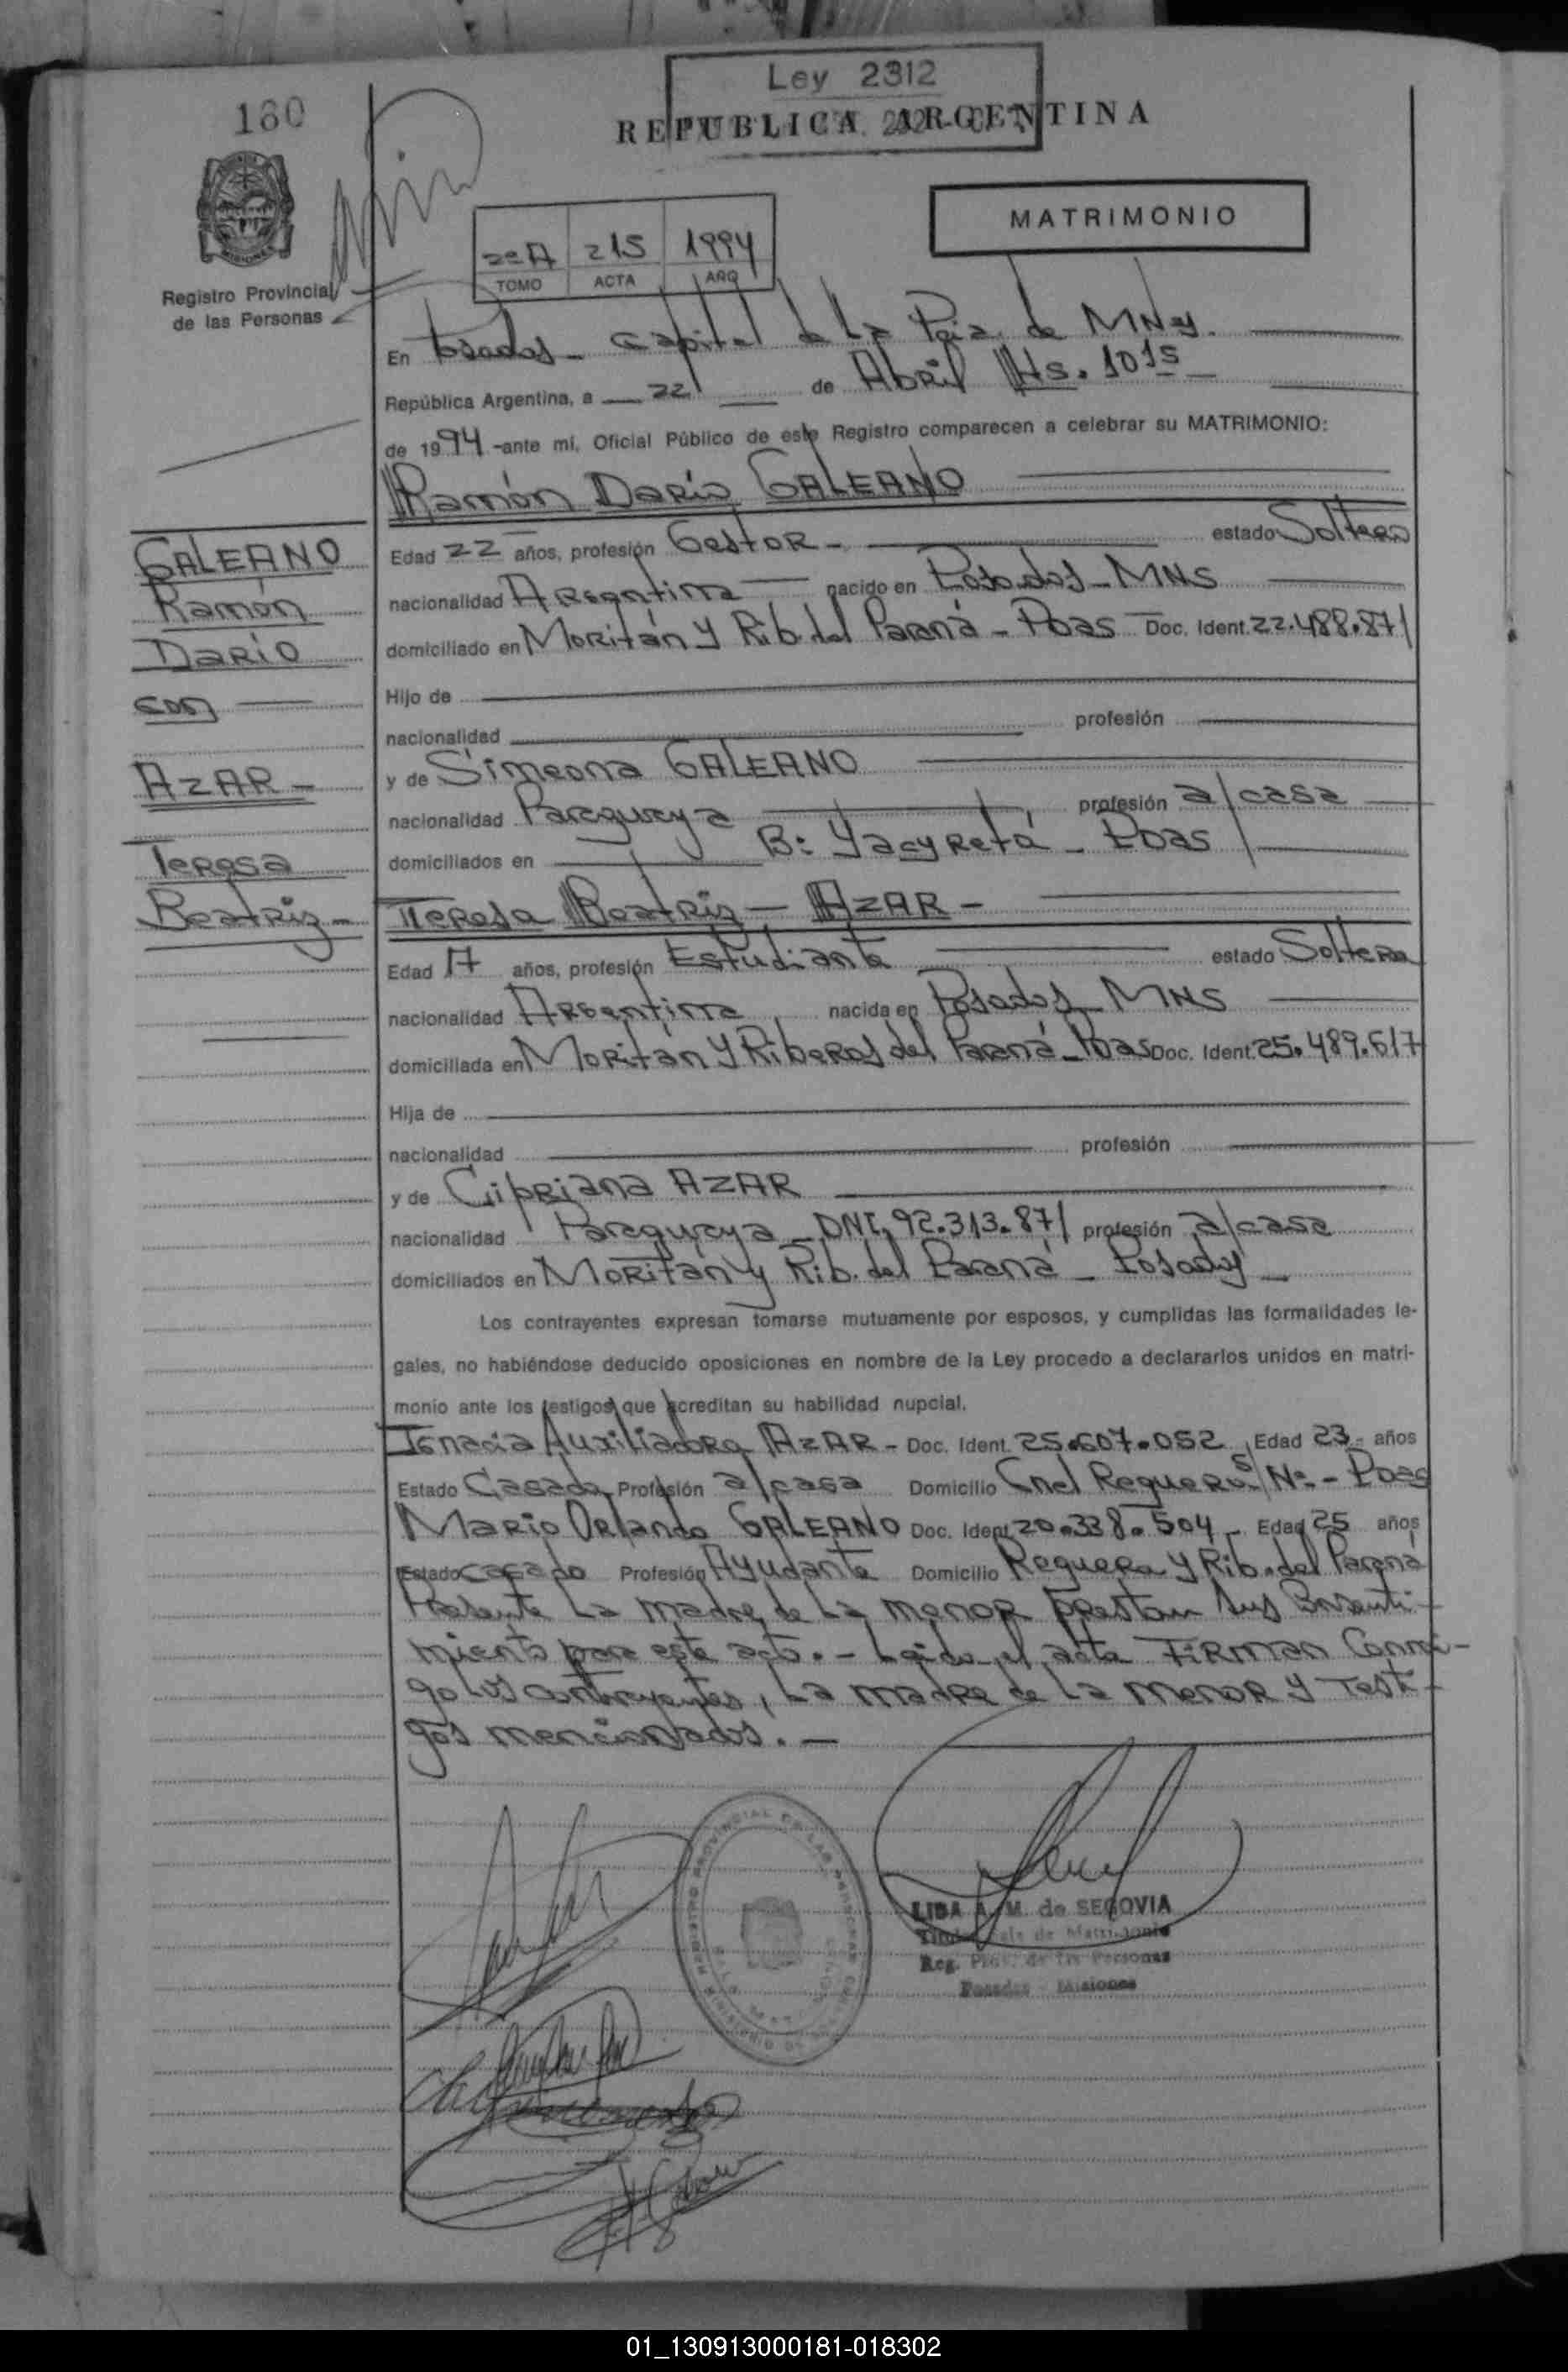 Ley 2312
160
REPUBLICA ARGENTINA
MATRIMONIO
2º A 215 1994
TOMO ACTA AÑO
Registro Provincial
de las Personas
En Posadas - Capital de La Pcia. de MNes.
República Argentina, a 22 de Abril Hs. 10 15
de 1994 -ante mí, Oficial Público de este Registro comparecen a celebrar su MATRIMONIO:
Ramón Darío GALEANO
GALEANO
Ramón
Darío
con
AZAR -
Teresa
Beatriz -
Edad 22 años, profesión Gestor - estado Soltero
nacionalidad Argentina nacido en Posadas - MNS
domiciliado en Moritán y Rib. del Paraná - Pdas Doc. Ident. 22.488.871
Hijo de
nacionalidad profesión
y de Simeona GALEANO
nacionalidad Paraguaya profesión a/casa
domiciliados en B: Yacyretá - Pdas
Teresa Beatriz - AZAR -
Edad 17 años, profesión Estudiante estado Soltera
nacionalidad Argentina nacida en Posadas - MNS
domiciliada en Moritán y Riberas del Paraná - Pdas Doc. Ident. 25.489.617
Hija de
nacionalidad profesión
y de Cipriana AZAR
nacionalidad Paraguaya - DNI. 92.313.871 profesión a/casa
domiciliados en Moritán y Rib. del Paraná - Posadas -
Los contrayentes expresan tomarse mutuamente por esposos, y cumplidas las formalidades le-
gales, no habiéndose deducido oposiciones en nombre de la Ley procedo a declararlos unidos en matri-
monio ante los testigos que acreditan su habilidad nupcial.
Ignacia Auxiliadora AZAR - Doc. Ident. 25.607.052 Edad 23 - años
Estado Casada Profesión a/casa Domicilio Cnel Reguera S/Nº - Pdas
Mario Orlando GALEANO Doc. Ident. 20.338.504 - Edad 25 años
Estado casado Profesión Ayudante Domicilio Reguera y Rib. del Paraná
Presente La madre de La menor prestan sus consenti-
miento para este acto. - Leída el acta FIRMAN Conmi-
go Los contrayentes, La madre de La menor y Testi-
gos mencionados. -
LIDA A. M. de SEGOVIA
Reg. Prov. de las Personas
Posadas - Misiones
01_130913000181-018302